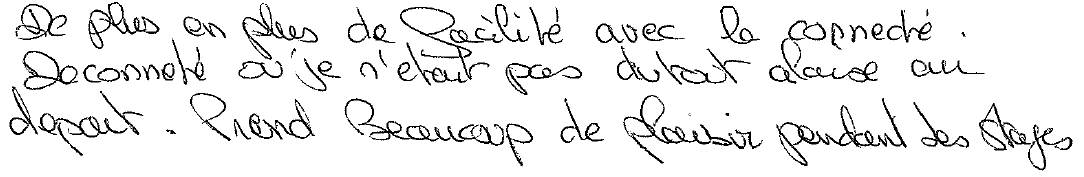 De plus en plus de facilité avec le connecté.
Deconneté ou je n'etait pas du tout alaise au
depart. Prend Beaucoup de plaisir pendant les stages